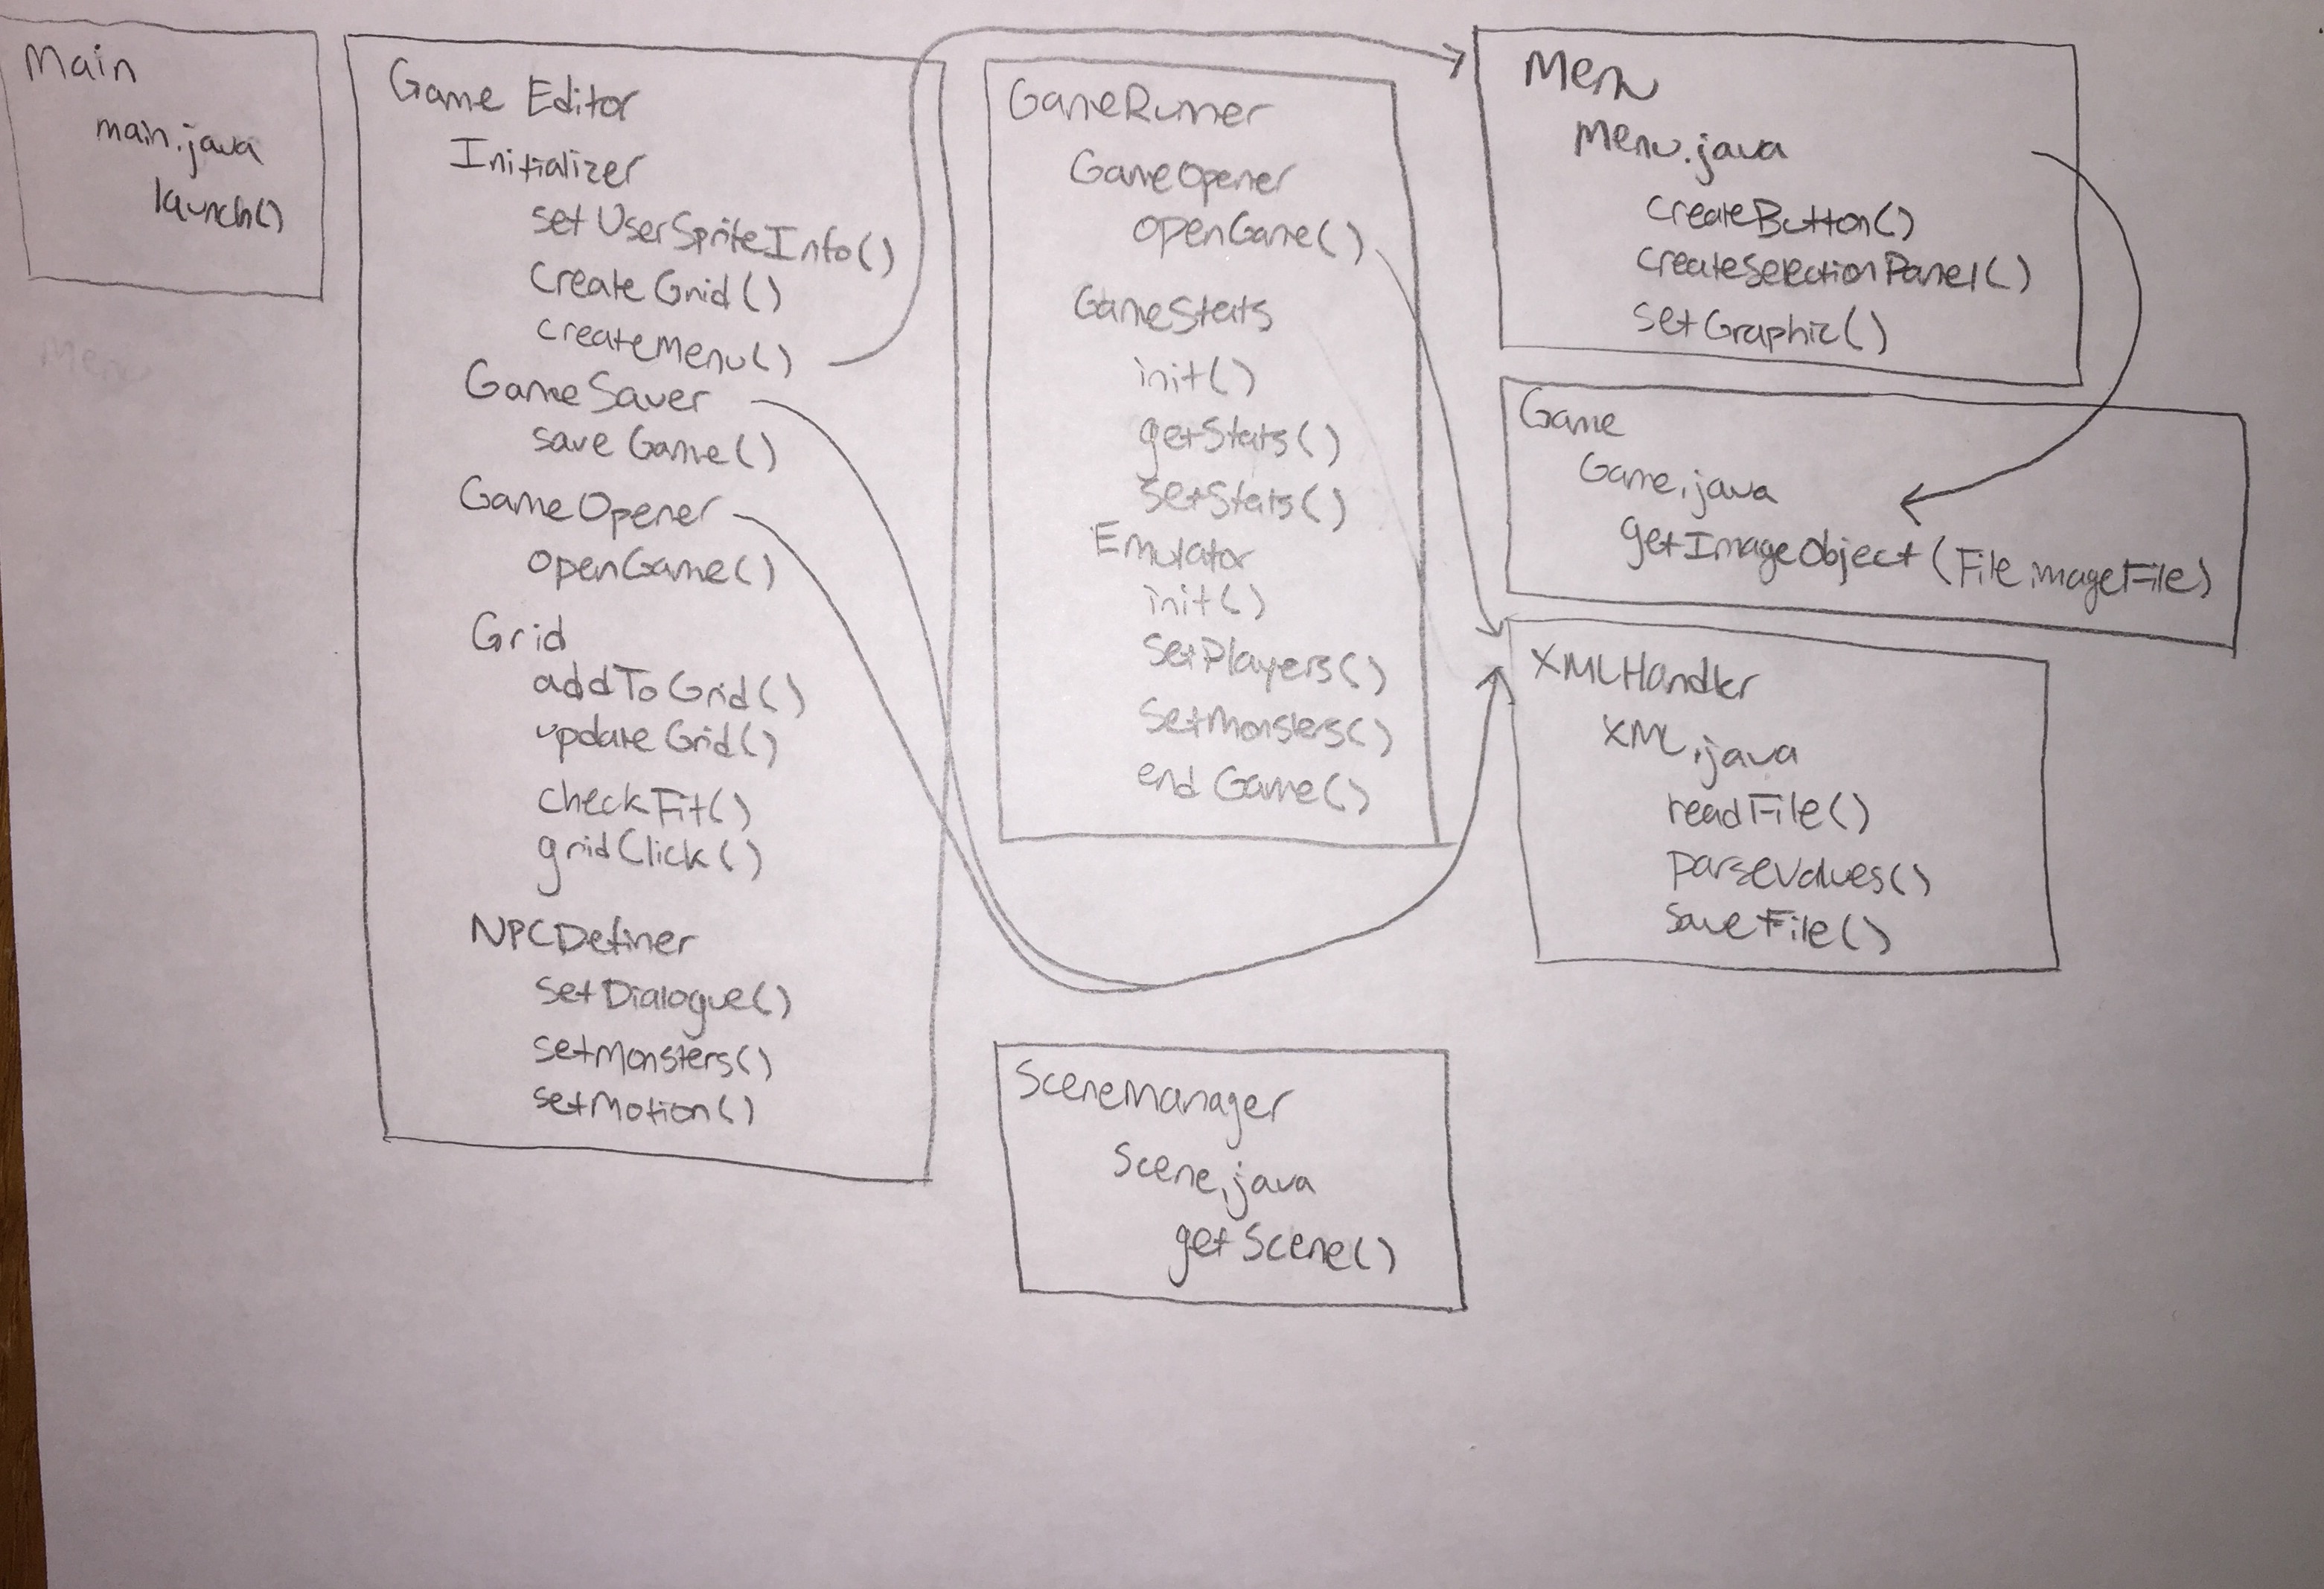 Main
main.java
launch()
Menu
Game Editor
Initializer
setUserSpriteInfo()
createGrid()
createMenu()
GameSaver
saveGame()
GameOpener
openGame()
Grid
addToGrid()
updateGrid()
checkFit()
gridClick()
NPCDefiner
setDialogue()
setMonsters()
setMotion()
GameRunner
GameOpener
openGame()
GameStats
init()
getStats()
setStats()
Emulator
init()
setPlayers()
setMonsters()
endGame()
SceneManager
Scene.java
getScene()
Menu
Menu.java
createButton()
createSelectionPanel()
setGraphic()
Game
Game.java
getImageObject(File imageFile)
XMLHandler
XML.java
readFile()
parseValues()
saveFile()